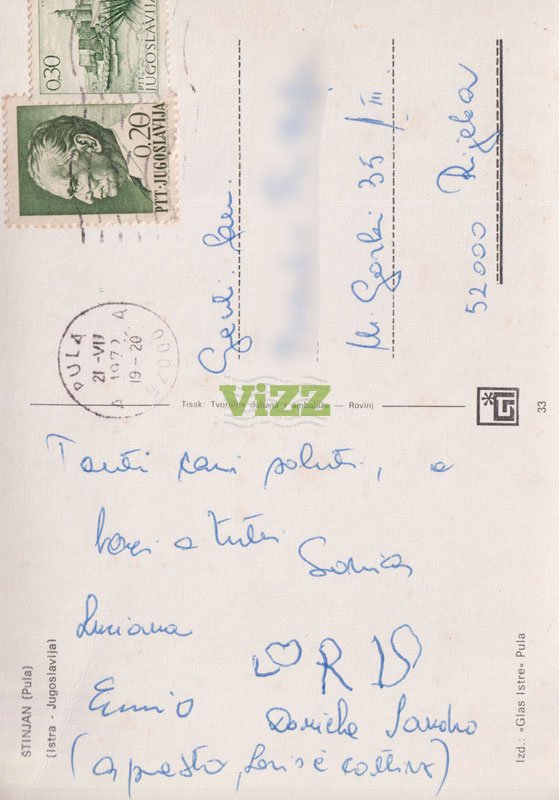 0.30
PTT JUGOSLAVIJA
0.20
PTT-JUGOSLAVIJA
PULA
21-VII
197
19-20
A A
52000
Gent. fam.
M. Gorki 35/III
52000 Rijeka
ViZZ
Tisak: Tvornica duhana i ambalaže — Rovinj
33
Tanti cari saluti, a
baci a tutti
Sonia
Luciana
Ennio
Sandro
(a presto,
ŠTINJAN (Pula)
(Istra - Jugoslavija)
Izd.: »Glas Istre« Pula